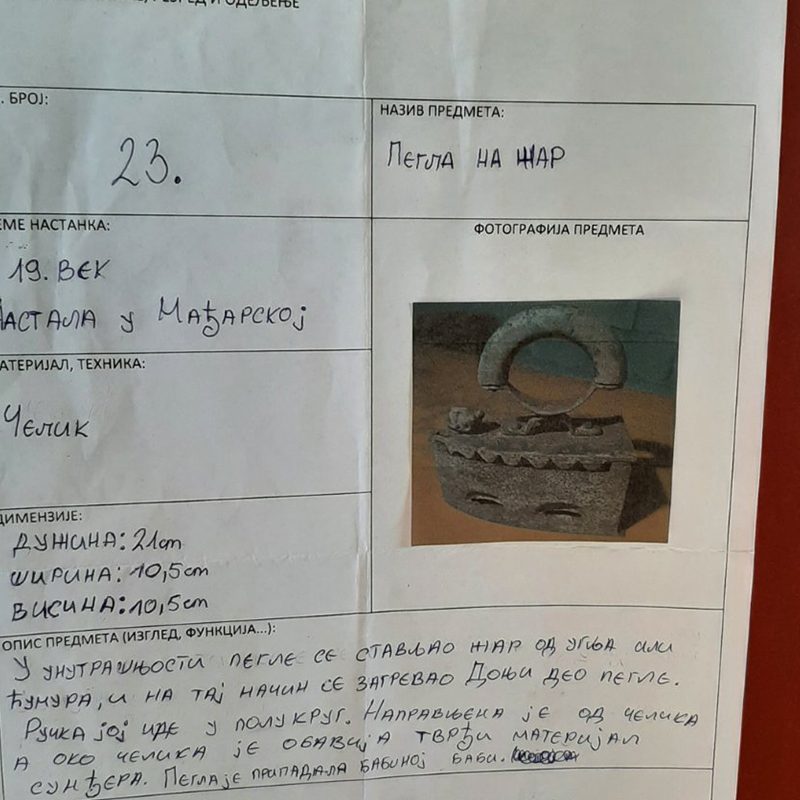 РАЗРЕД И ОДЕЉЕЊЕ
. БРОЈ:
23.
НАЗИВ ПРЕДМЕТА:
ПЕГЛА НА ЖАР
ЕМЕ НАСТАНКА:
19. ВЕК
НАСТАЛА У МАЂАРСКОЈ
ФОТОГРАФИЈА ПРЕДМЕТА
АТЕРИЈАЛ, ТЕХНИКА:
ЧЕЛИК
ДИМЕНЗИЈЕ:
ДУЖИНА: 21cm
ШИРИНА: 10,5cm
ВИСИНА: 10,5cm
ОПИС ПРЕДМЕТА (ИЗГЛЕД, ФУНКЦИЈА...):
У УНУТРАШЊОСТИ ПЕГЛЕ СЕ СТАВЉАО ЖАР ОД УГЉА ИЛИ
ЋУМУРА, И НА ТАЈ НАЧИН СЕ ЗАГРЕВАО ДОЊИ ДЕО ПЕГЛЕ.
РУЧКА ЈОЈ ИДЕ У ПОЛУКРУГ. НАПРАВЉЕНА ЈЕ ОД ЧЕЛИКА
А ОКО ЧЕЛИКА ЈЕ ОБАВИЈА ТВРЂИ МАТЕРИЈАЛ
СУНЂЕРА. ПЕГЛА ЈЕ ПРИПАДАЛА БАБИНОЈ БАБИ.